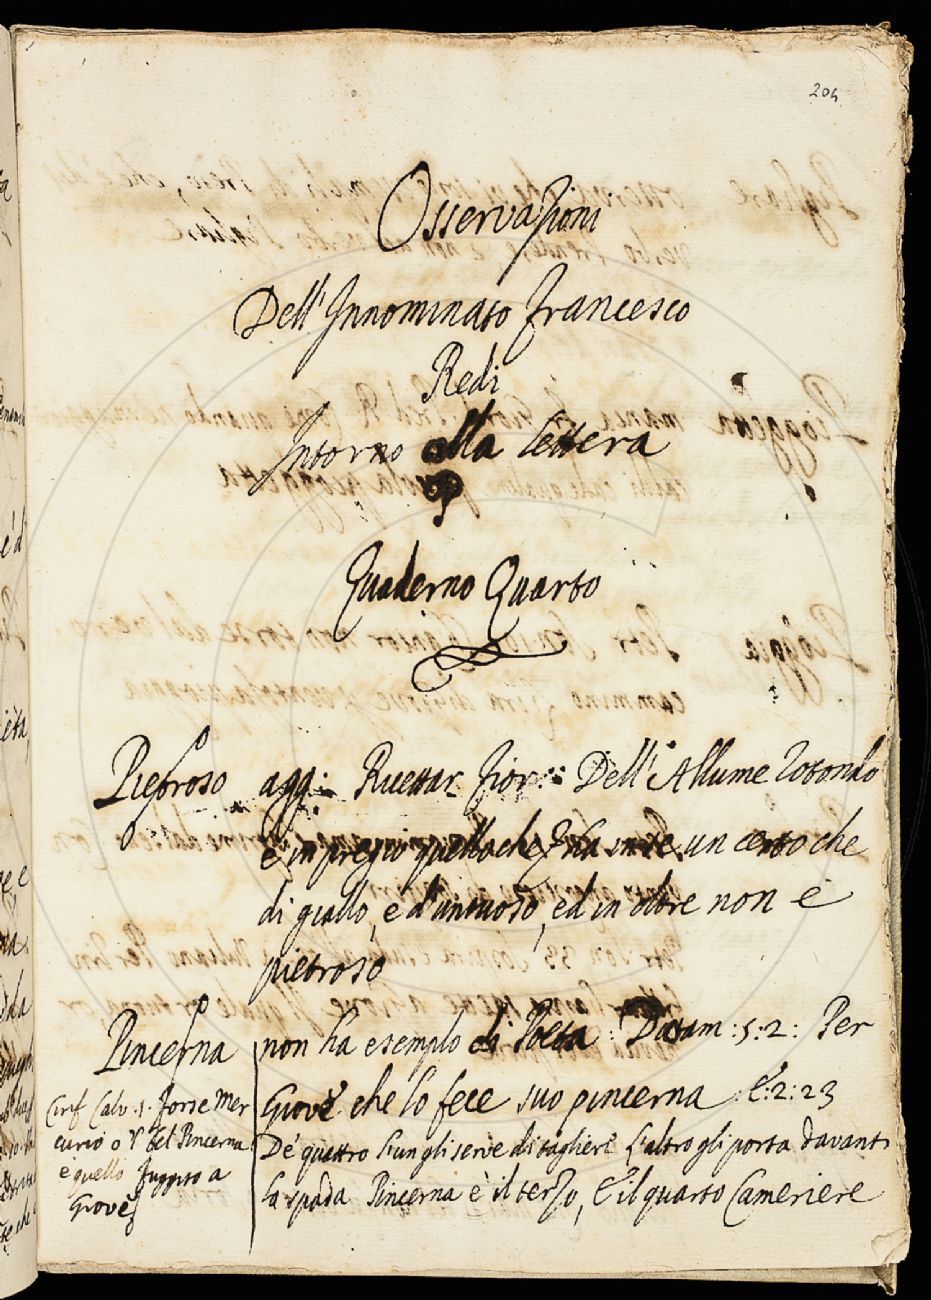 204
Osservazioni
Dell'Innominato Francesco
Redi
Intorno alla lettera
P
Quaderno Quarto
Pietroso agg: Ricettar. Fior: Dell'Allume Rotondo
è in pregio quello che ha un certo che
di giallo, e d'untuoso, ed in oltre non è
pietroso
Pincerna non ha esempio di Poeta: Dittam: 5: 2: Per
Giove che lo fece suo pincerna. E: 2: 23
De' quattro l'un gli serve di tagliere l'altro gli porta davanti
la spada Pincerna è il terzo, E il quarto Cameriere
Cirif. Calv. 1. Forse Mer
curio o V del Pincerna
e quello fuggito a
Giove